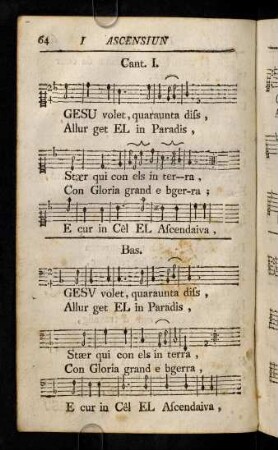 64 I ASCENSIUN
Cant. I.
GESU volet, quaraunta diſs ,
Allur get EL in Paradis ,
Stær qui con els in ter--ra ,
Con Gloria grand e bger-ra ;
E cur in Cêl EL Aſcendaiva ,
Bas.
GESV volet, quaraunta diſs ,
Allur get EL in Paradis ,
Stær qui con els in terra ,
Con Gloria grand e bgerra ,
E cur in Cêl EL Aſcendaiva ,